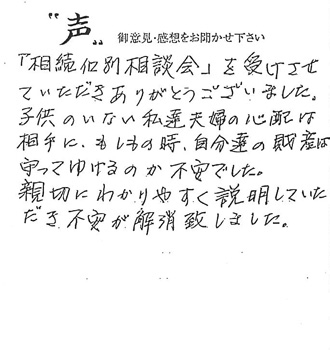 "声" 御意見・感想をお聞かせ下さい
「相続個別相談会」を受けさせ
ていただきありがとうございました。
子供のいない私達夫婦の心配は
相手に、もしもの時、自分達の財産は
守ってゆけるのか不安でした。
親切にわかりやすく説明していた
だき不安が解消致しました。